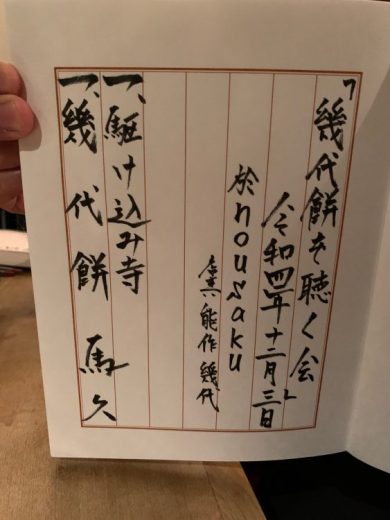 「幾代餅を聴く会
令和四年十二月三日」
於nousaku
能作幾代
一、駆け込み寺
一、幾代餅 馬久